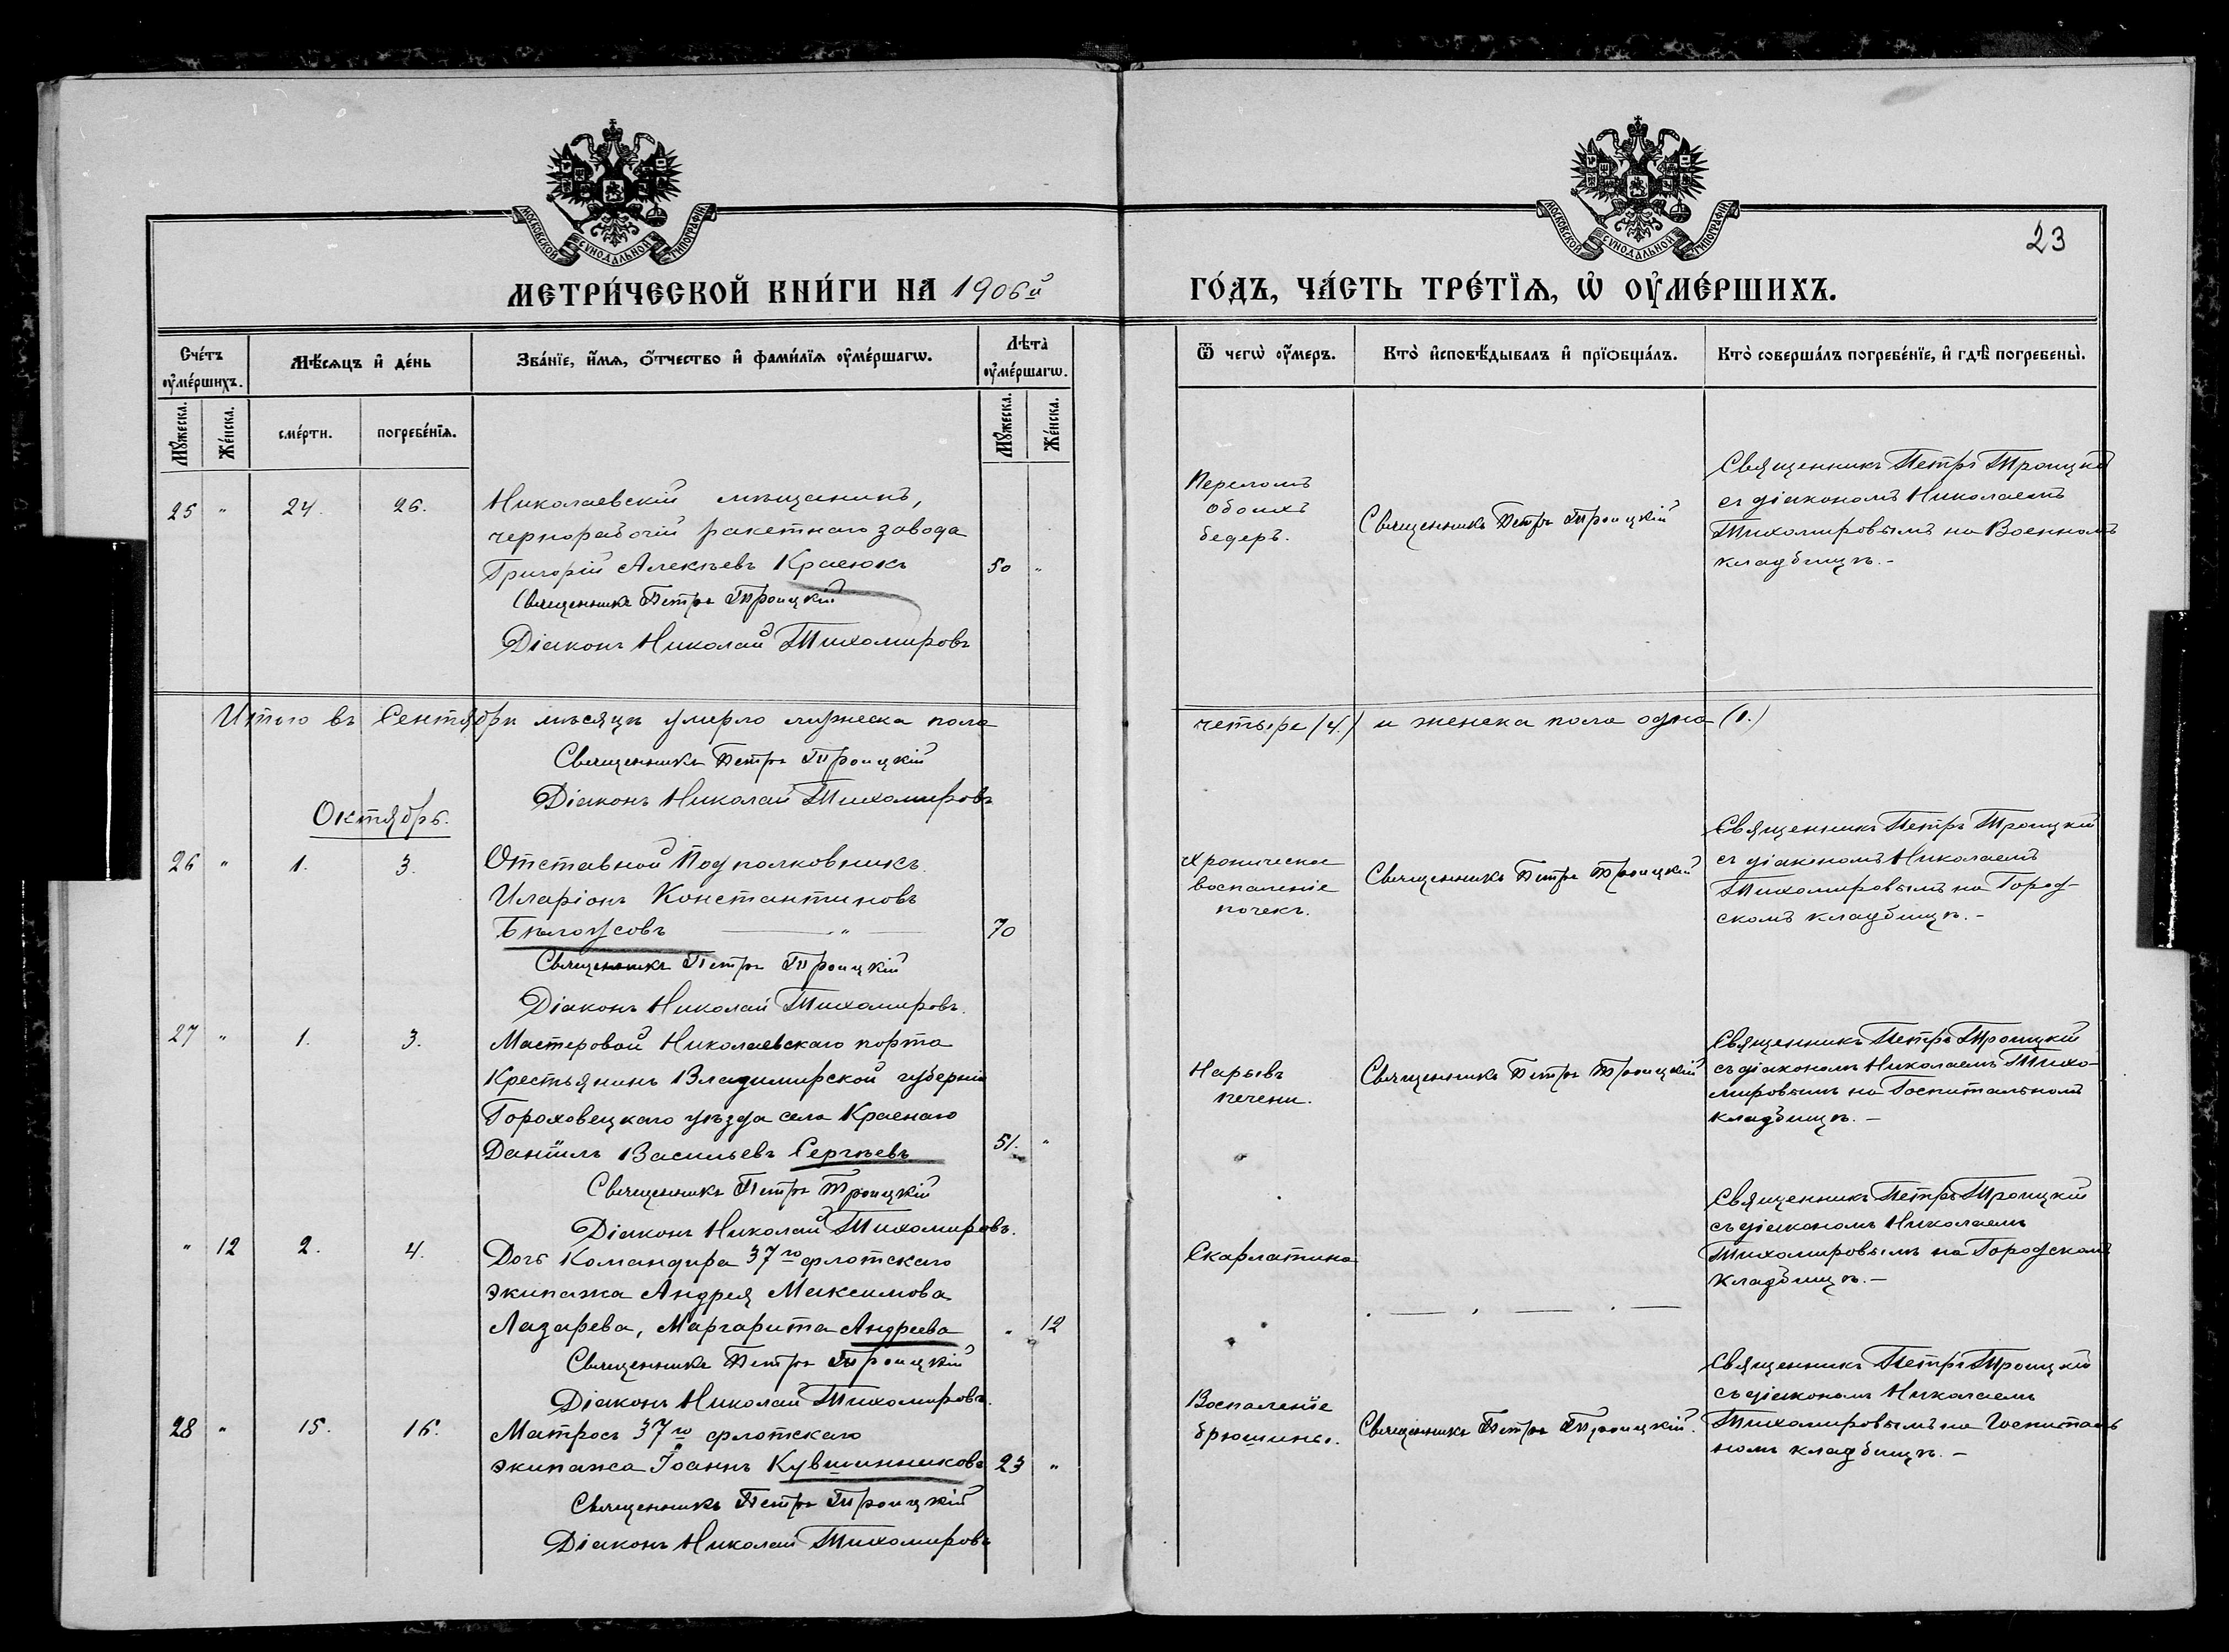 МОСКОВСКОЙ СѴНОДАЛЬНОЙ ТИПОГРАФІИ
МОСКОВСКОЙ СѴНОДАЛЬНОЙ ТИПОГРАФІИ
23
МЕТРИ́ЧЕСКОЙ КНИ́ГИ НА 1906й
ГО́ДЪ, ЧА́СТЬ ТРЕ́ТЇѦ, Ѡ҆ ОУ҆МЕ́РШИХЪ.
Сче́тъ оу҆ме́ршихъ.
Мѣ́сѧцъ и҆ де́нь
Зва́нїе, и҆́мѧ, ѻ҆́тчество и҆ фами́лїѧ оу҆ме́ршагѡ.
Лѣта̀ оу҆ме́ршагѡ.
Ѿ чегѡ̀ оу҆́меръ.
Кто̀ и҆сповѣ́дывалъ и҆ прїѻбща́лъ.
Кто̀ соверша́лъ погребе́нїе, и҆ гдѣ̀ погребены̀.
Мꙋ́жеска.
Же́нска.
сме́рти.
погребе́нїѧ.
Мꙋ́жеска.
Же́нска.
25 " 24. 26.
Николаевскій мѣщанинъ,
чернорабочій ракетнаго завода
Григорій Алексѣевъ Красюкъ 50 "
Священникъ Петръ Троицкій
Діаконъ Николай Тихомировъ
Переломъ
обоихъ
бедеръ.
Священникъ Петръ Троицкій
Священникъ Петръ Троицкій
съ діакономъ Николаемъ
Тихомировымъ на Военномъ
кладбищѣ.-
Итого въ Сентябрѣ мѣсяцѣ умерло мужеска пола четыре (4.) и женска пола одна (1.)
Священникъ Петръ Троицкій
Діаконъ Николай Тихомировъ
Октябрь.
26 " 1. 3.
Отставной Подполковникъ
Иларіонъ Константиновъ
Бѣлоусовъ " 70
Священникъ Петръ Троицкій
Діаконъ Николай Тихомировъ.
Хроническое
воспаленіе
почекъ.
Священникъ Петръ Троицкій
Священникъ Петръ Троицкій
съ діакономъ Николаемъ
Тихомировымъ на Город-
скомъ кладбищѣ.-
27 " 1. 3.
Мастеровой Николаевскаго порта
Крестьянинъ Владимирской губерніи
Гороховецкаго уѣзда села Краснаго
Даніилъ Васильевъ Сергѣевъ 51. "
Священникъ Петръ Троицкій
Діаконъ Николай Тихомировъ.
Нарывъ
печени.
Священникъ Петръ Троицкій
Священникъ Петръ Троицкій
съ діакономъ Николаемъ Тихо-
мировымъ на Госпитальномъ
кладбищѣ.-
" 12 2. 4.
Дочь Командира 37го флотскаго
экипажа Андрея Максимова
Лазарева, Маргарита Андреева " 12
Священникъ Петръ Троицкій
Діаконъ Николай Тихомировъ.
Скарлатина
Священникъ Петръ Троицкій
съ діакономъ Николаемъ
Тихомировымъ на Городскомъ
кладбищѣ.-
28 " 15. 16.
Матросъ 37го флотскаго
экипажа Іоаннъ Кувшинниковъ 23 "
Священникъ Петръ Троицкій
Діаконъ Николай Тихомировъ
Воспаленіе
брюшины.
Священникъ Петръ Троицкій.
Священникъ Петръ Троицкій
съ діакономъ Николаемъ
Тихомировымъ на Госпиталь
номъ кладбищѣ.-